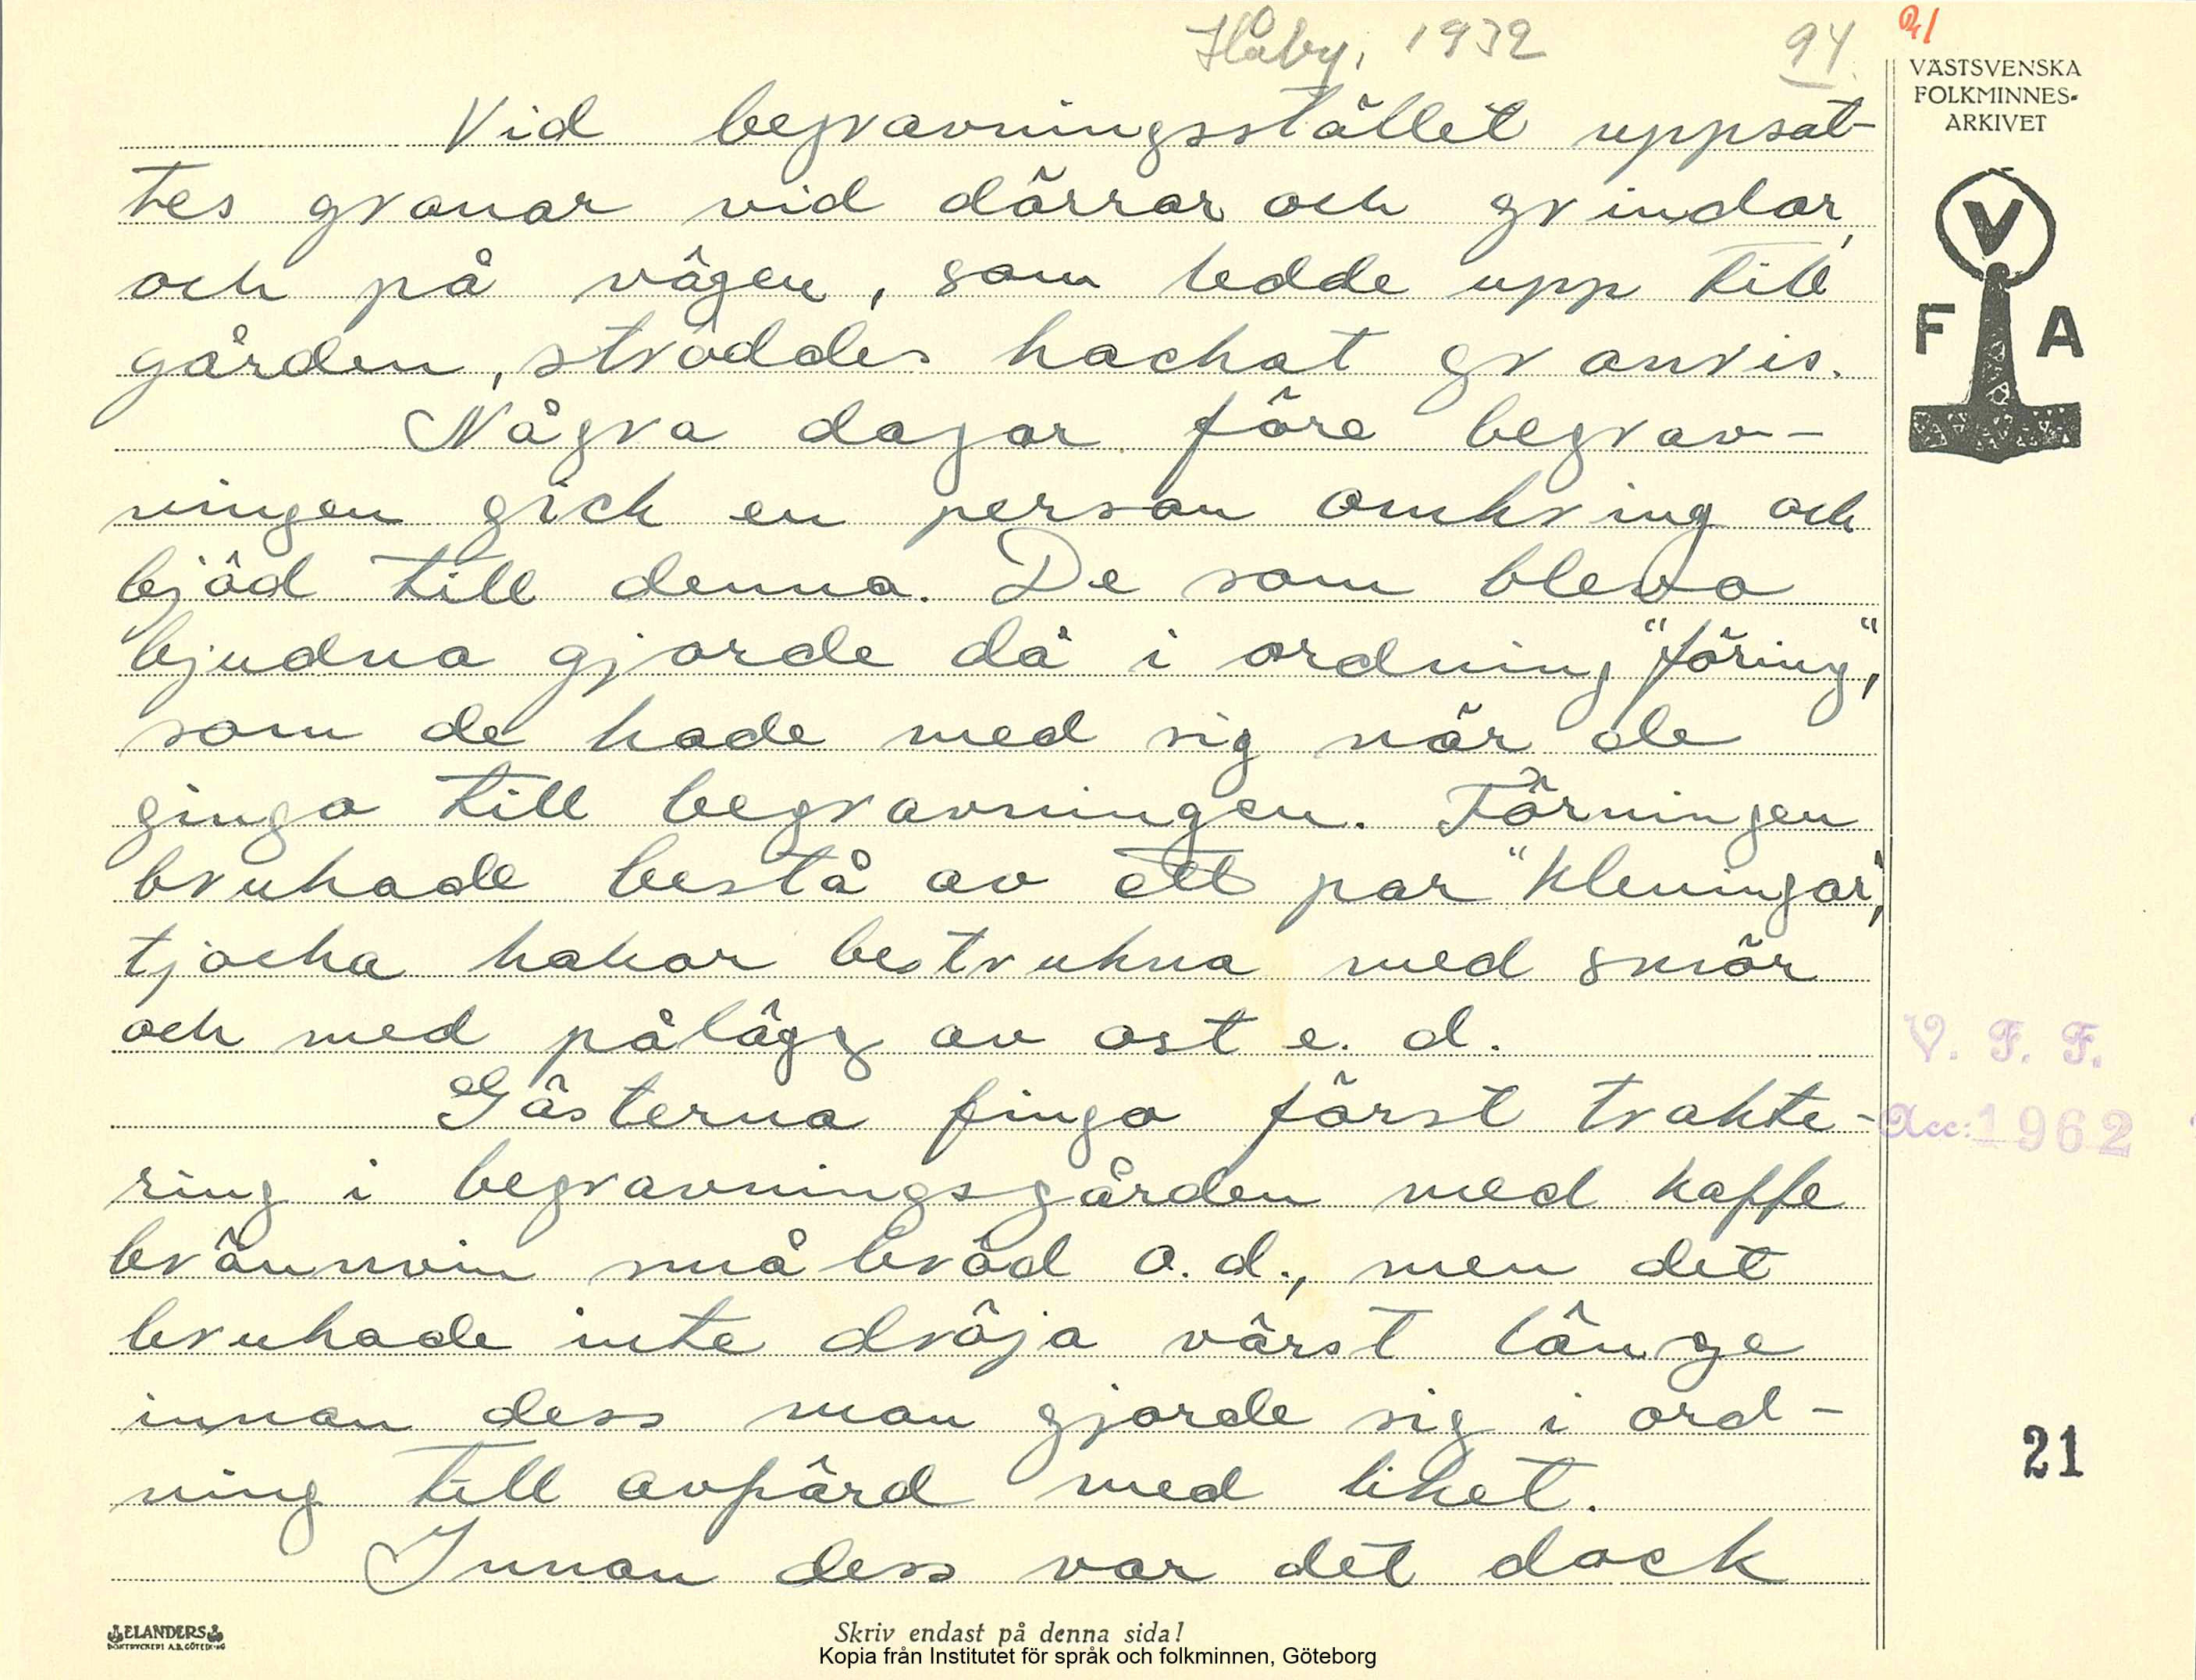 Håby, 1932
94.
21
VÄSTSVENSKA
FOLKMINNES-
ARKIVET
V
F A
Vid begravningsstället uppsat-
tes granar vid dörrar och grindar,
och på vägen, som ledde upp till
gården, ströddes hackat granris.
Några dagar före begrav-
ningen gick en person omkring och
bjöd till denna. De som bleva
bjudna gjorde då i ordning "föring",
som de hade med sig när de
gingo till begravningen. Förningen
brukade bestå av ett par "kleningar",
tjocka kakor bestrukna med smör
och med pålägg av ost e. d.
Gästerna fingo först trakte-
ring i begravningsgården med kaffe
brännvin småbröd o.d., men det
brukade inte dröja värst länge
innan dess man gjorde sig i ord-
ning till avfärd med liket.
Innan dess var det dock
V. F. F.
Acc: 1962
21
ELANDERS
BOKTRYCKERI A.B. GÖTEBORG
Skriv endast på denna sida!
Kopia från Institutet för språk och folkminnen, Göteborg